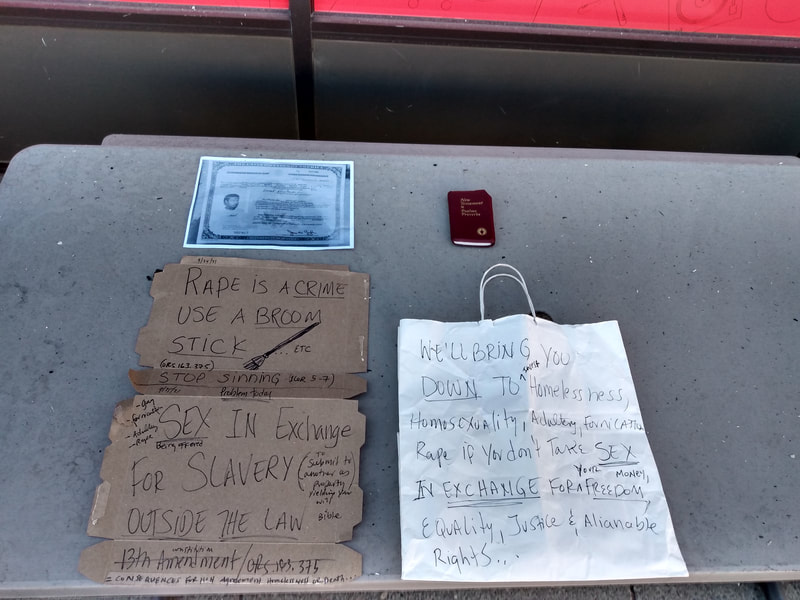 New
Testament
Psalms
Proverbs
RAPE IS A CRIME
USE A BROOM
STICK ... ETC
(ORS 163.375)
STOP SINNING
Problem today
- Gay
- Fornicate
- Adultery
- Rape
SEX IN Exchange
Being offered
FOR SLAVERY (To Submit to
another as
property
yielding your
will)
Bible
OUTSIDE THE LAW
constitution
13th Amendment/ORS 163.375
= CONSEQUENCES FOR Agreement Homelessness or Death...
WE'LL BRING YOU
DOWN TO Homelessness,
Homosexuality, Adultery, FORNICATION
Rape if You don't Take SEX
YOUR MONEY,
IN EXCHANGE FOR FREEDOM,
EQUALITY, Justice & Alianable
Rights...